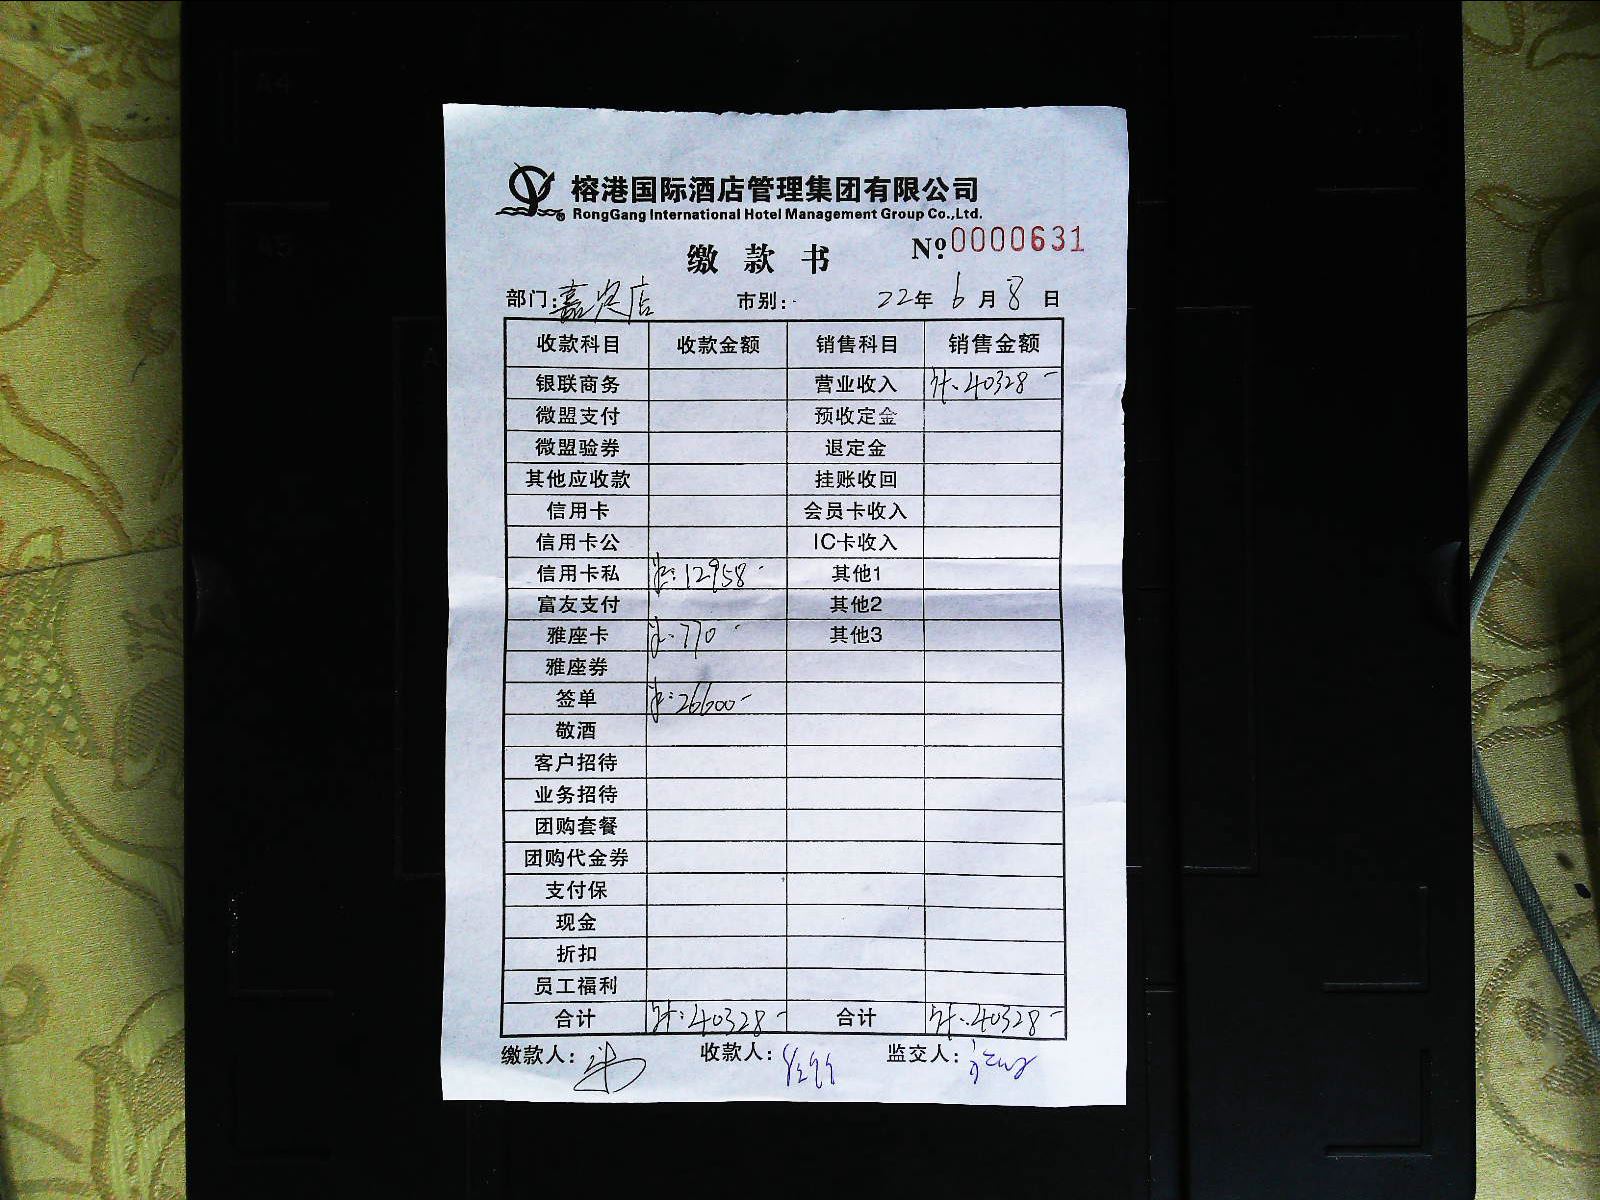 榕港国际酒店管理集团有限公司
RongGang International Hotel Management Group Co.,Ltd.
缴款书 №:0000631
部门:嘉定店 市别: 22年6月8日
收款科目 收款金额 销售科目 销售金额
银联商务 营业收入 40328-
微盟支付 预收定金
微盟验券 退定金
其他应收款 挂账收回
信用卡 会员卡收入
信用卡公 IC卡收入
信用卡私 12958- 其他1
富友支付 其他2
雅座卡 770- 其他3
雅座券
签单 26600-
敬酒
客户招待
业务招待
团购套餐
团购代金券
支付保
现金
折扣
员工福利
合计 40328- 合计 40328-
缴款人: 收款人: 监交人: